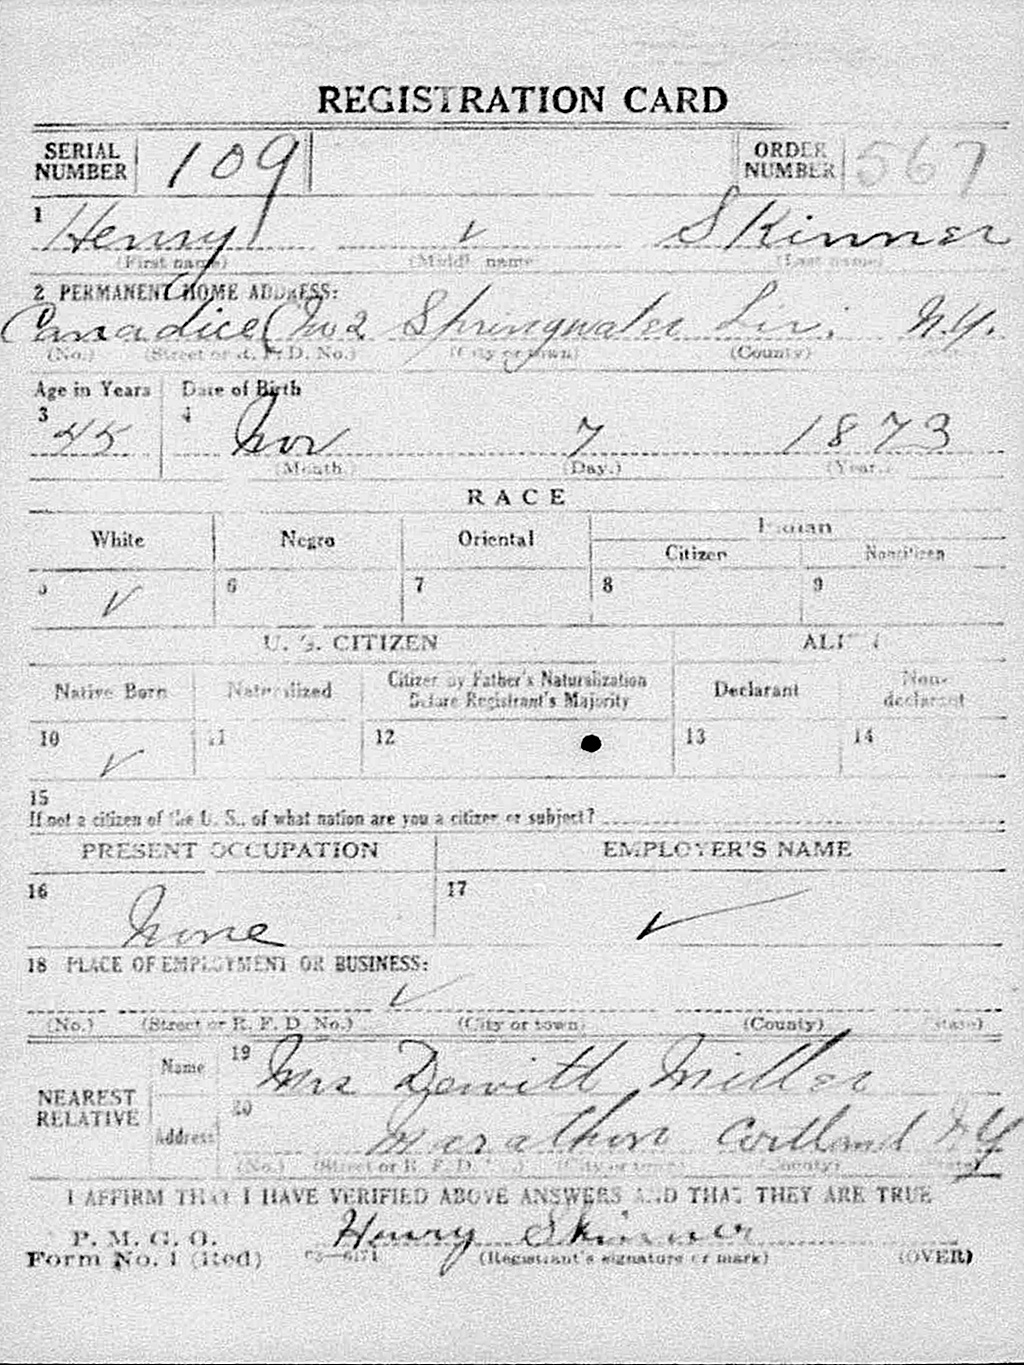 REGISTRATION CARD
SERIAL NUMBER 109 ORDER NUMBER 567
1 Henry ✓ Skinner
(First name) (Middle name) (Last name)
2 PERMANENT HOME ADDRESS:
Canadice (No 2 Springwater Liv. N.Y.
(No.) (Street or R. F. D. No.) (City or town) (County)
Age in Years Date of Birth
3 45 4 Nov 7 1873
(Month.) (Day.) (Year.)
RACE
White Negro Oriental Indian
Citizen Noncitizen
5 ✓ 6 7 8 9
U. S. CITIZEN ALIEN
Native Born Naturalized Citizen by Father's Naturalization Before Registrant's Majority Declarant Non-declarant
10 ✓ 11 12 13 14
15
If not a citizen of the U. S., of what nation are you a citizen or subject?
PRESENT OCCUPATION EMPLOYER'S NAME
16 None 17 ✓
18 PLACE OF EMPLOYMENT OR BUSINESS:
✓
(No.) (Street or R. F. D. No.) (City or town) (County) (State)
NEAREST RELATIVE Name 19 Mrs Dewitt Miller
Address 20 Marathon Cortland N Y
(No.) (Street or R. F. D. No.) (City or town) (County) (State)
I AFFIRM THAT I HAVE VERIFIED ABOVE ANSWERS AND THAT THEY ARE TRUE
P. M. G. O. Henry Skinner
Form No. 1 (Red) 03—6171 (Registrant's signature or mark) (OVER)